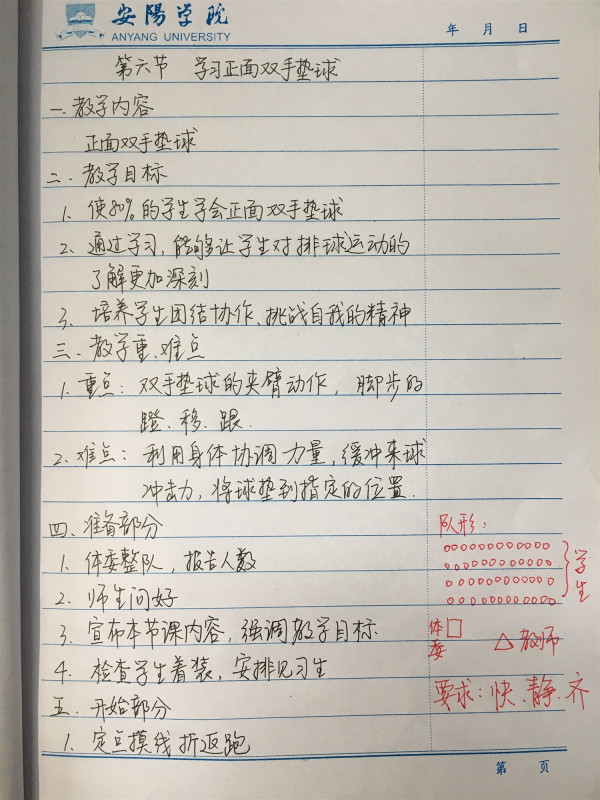 安陽学院
ANYANG UNIVERSITY
年 月 日
第六节 学习正面双手垫球
一.教学内容
正面双手垫球
二.教学目标
1. 使80%的学生学会正面双手垫球
2. 通过学习,能够让学生对排球运动的
了解更加深刻
3. 培养学生团结协作、挑战自我的精神
三.教学重、难点
1.重点:双手垫球的夹臂动作,脚步的
蹬.移.跟.
2.难点:利用身体协调力量,缓冲来球
冲击力,将球垫到指定的位置.
四.准备部分
1. 体委整队,报告人数
2. 师生问好
3. 宣布本节课内容,强调教学目标
4. 检查学生着装,安排见习生
五.开始部分
1. 定点摸线折返跑
队形:
学生
体委
教师
要求:快.静.齐
第 页